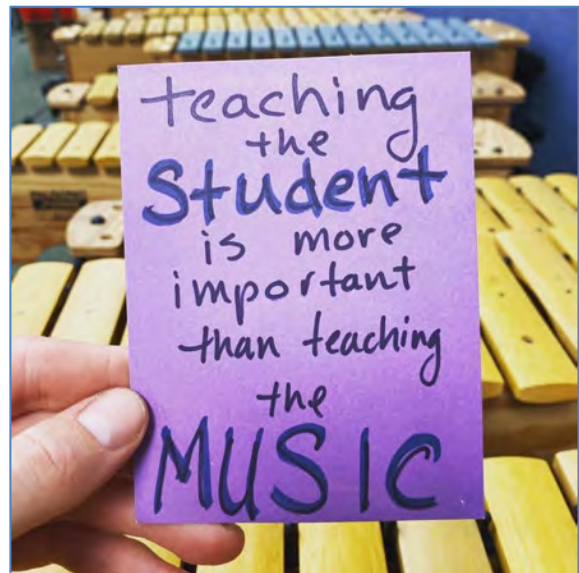 teaching
the
Student
is more
important
than teaching
the
MUSIC